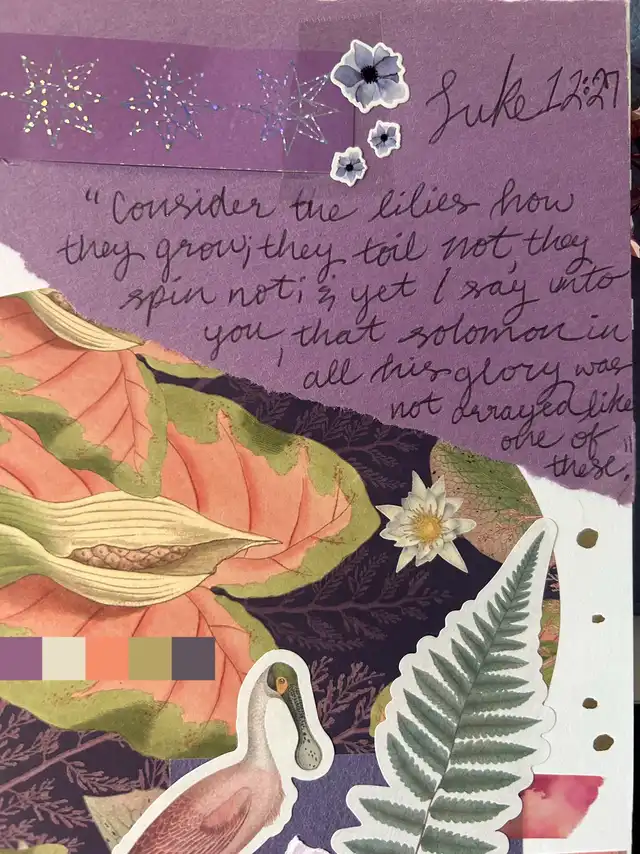 Luke 12:27
"Consider the lilies how
they grow; they toil not, they
spin not; & yet I say unto
you, that solomon in
all his glory was
not arrayed like
one of
these."